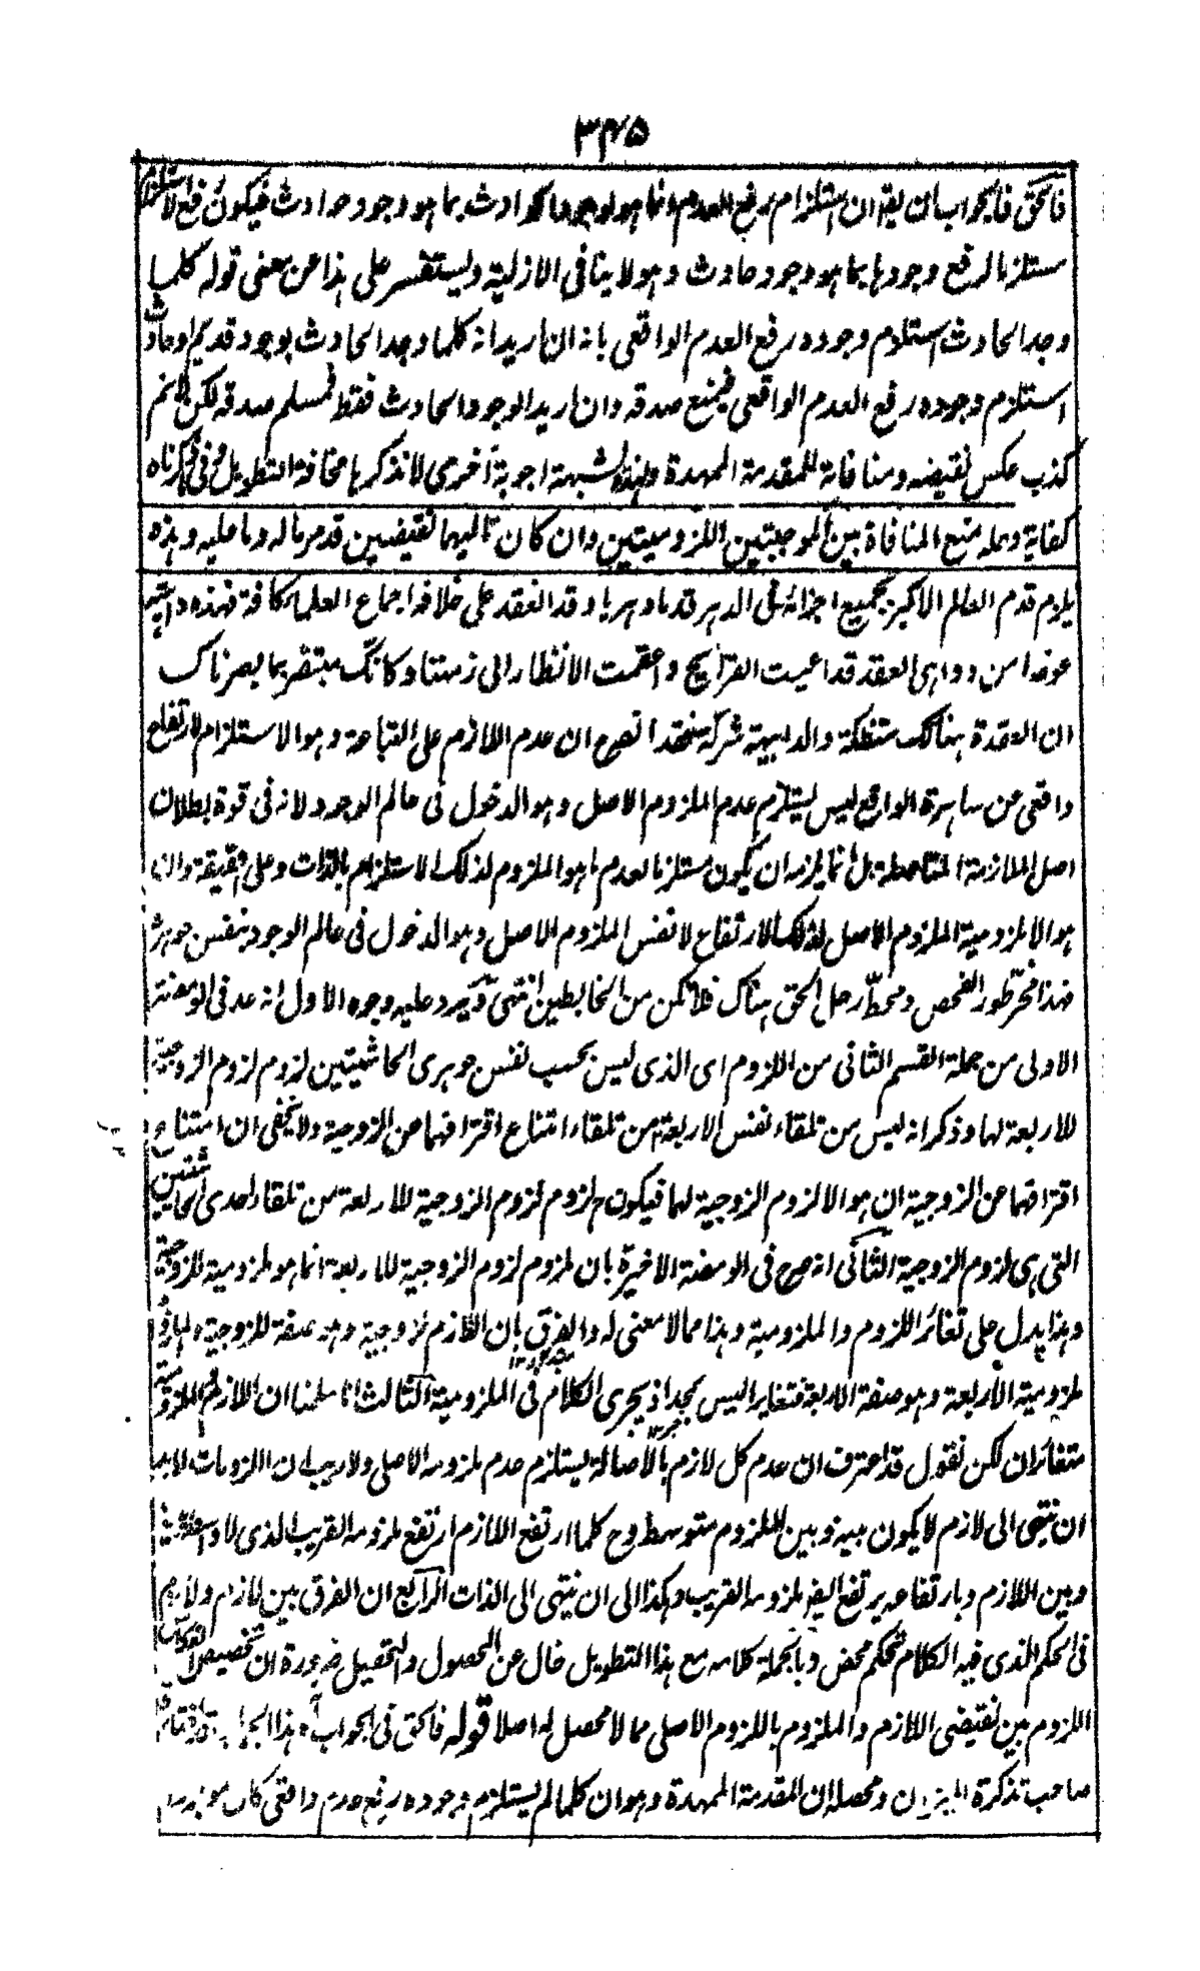 ۳۴۵
فالحق فالجواب ان يقه ان استلزام رفع العدم انما هو لوجود الحوادث بما هو وجود حوادث فيكون رفع الاستلزام
مستلزما لرفع وجودها بما هو وجود حادث وهو لا ينافى الازلية ويستفسر على هذا عن معنى قوله كلما
وجد الحادث استلزم وجوده رفع العدم الواقعى بانه ان اريد انه كلما وجد الحادث بوجود قديم او حادث
استلزم وجوده رفع العدم الواقعى فيمنع صدقه وان اريد الوجود الحادث فقط فمسلم صدقه لكن لا نم
كذب عكس نقيضه ومنافاته للمقدمة الممهدة ولهذه الشبهة اجوبة اخرى لا نذكرها مخافة التطويل وفى ما ذكرناه
كفاية وعله منع المنافاة بين الموجبتين اللزوميتين وان كان تاليهما نقيضين قد مر ما له وما عليه وهذه
يلزم قدم العالم الاكبر بجميع اجزائه فى الدهر قدما دهريا وقد انعقد على خلافه اجماع العلماء كافة فهذه داهية
عوصاء من دواهى العقد قد اعيت القرائح واعقمت الانظار الى زمننا وكانك مبتقر بما بصرناك
ان العقدة هنالك متفككة والداهية شركة منقعدا تصح ان عدم اللازم على القباحة وهو الاستلزام لارتفاع
واقعى عن ساهرة الواقع ليس يستلزم عدم الملزوم الاصل وهو الدخول فى عالم الوجود لانه فى قوة بطلان
اصل الملازمة بل انما يلزمه ان يكون مستلزما لعدم ما هو الملزوم لذلك الاستلزام بالذات وعلى الحقيقة وان
هو الا ملزومية الملزوم الاصل لذلك الارتفاع لا نفس الملزوم الاصل وهو الدخول فى عالم الوجود بنفس جوهره
فهذا مخ طور الفحص ومحط رحل الحق هناك فلا تكن من الخابطين انتهى ويرد عليه وجوه الاول انه عد فى الومضة
الاولى من جملة القسم الثانى من اللزوم اى الذى ليس بحسب نفس جوهرى الحاشيتين لزوم لزوم الزوجية
للاربعة لها وذكر انه ليس من تلقاء نفس الاربعة من تلقاء امتناع افتراقهما عن الزوجية ولا يخفى ان امتناع
افتراقهما عن الزوجية ان هو الا لزوم الزوجية لهما فيكون ح لزوم لزوم الزوجية للاربعة من تلقاء احدى الحاشيتين
التى هى لزوم الزوجية الثانى انه صرح فى الومضة الاخيرة بان لزوم لزوم الزوجية للاربعة انما هو ملزومية للزوجية
وهذا يدل على تغائر اللزوم والملزومية وهذا مما لا معنى له والفرق بان اللازم زوجية وهى صفة للزوجية والملزوم
ملزومية الاربعة وهو صفة الاربعة فتغايرا ليس بمجد اذ يجرى الكلام فى الملزومية الثالث انا سلمنا ان اللازم والملزومية
متغائران لكن نقول قد اعترف ان عدم كل لازم بالاصالة يستلزم عدم ملزومه الاصلى ولا ريب ان اللزومات لا بد
ان تنتهى الى لازم لا يكون بينه وبين الملزوم متوسط وح كلما ارتفع اللازم ارتفع ملزومه القريب الذى لا واسطة بينه
وبين اللازم وبارتفاعه يرتفع ايضا ملزومه القريب وهكذا الى ان ينتهى الى الذات الرابع ان الفرق بين لازم ولازم
فى الحكم الذى فيه الكلام تحكم محض وبالجملة كلامه مع هذا التطويل خال عن المحصول والتحصيل ضرورة ان تخصيص الفكاك
اللزوم بين نقيضى اللازم والملزوم باللزوم الاصلى مما لا محصل له اصلا قوله فالحق فى الجواب اه هذا الجواب
صاحب تذكرة الميزان ومحصله ان المقدمة الممهدة وهو ان كلما لم يستلزم وجوده رفع عدم واقعى كان موجودا